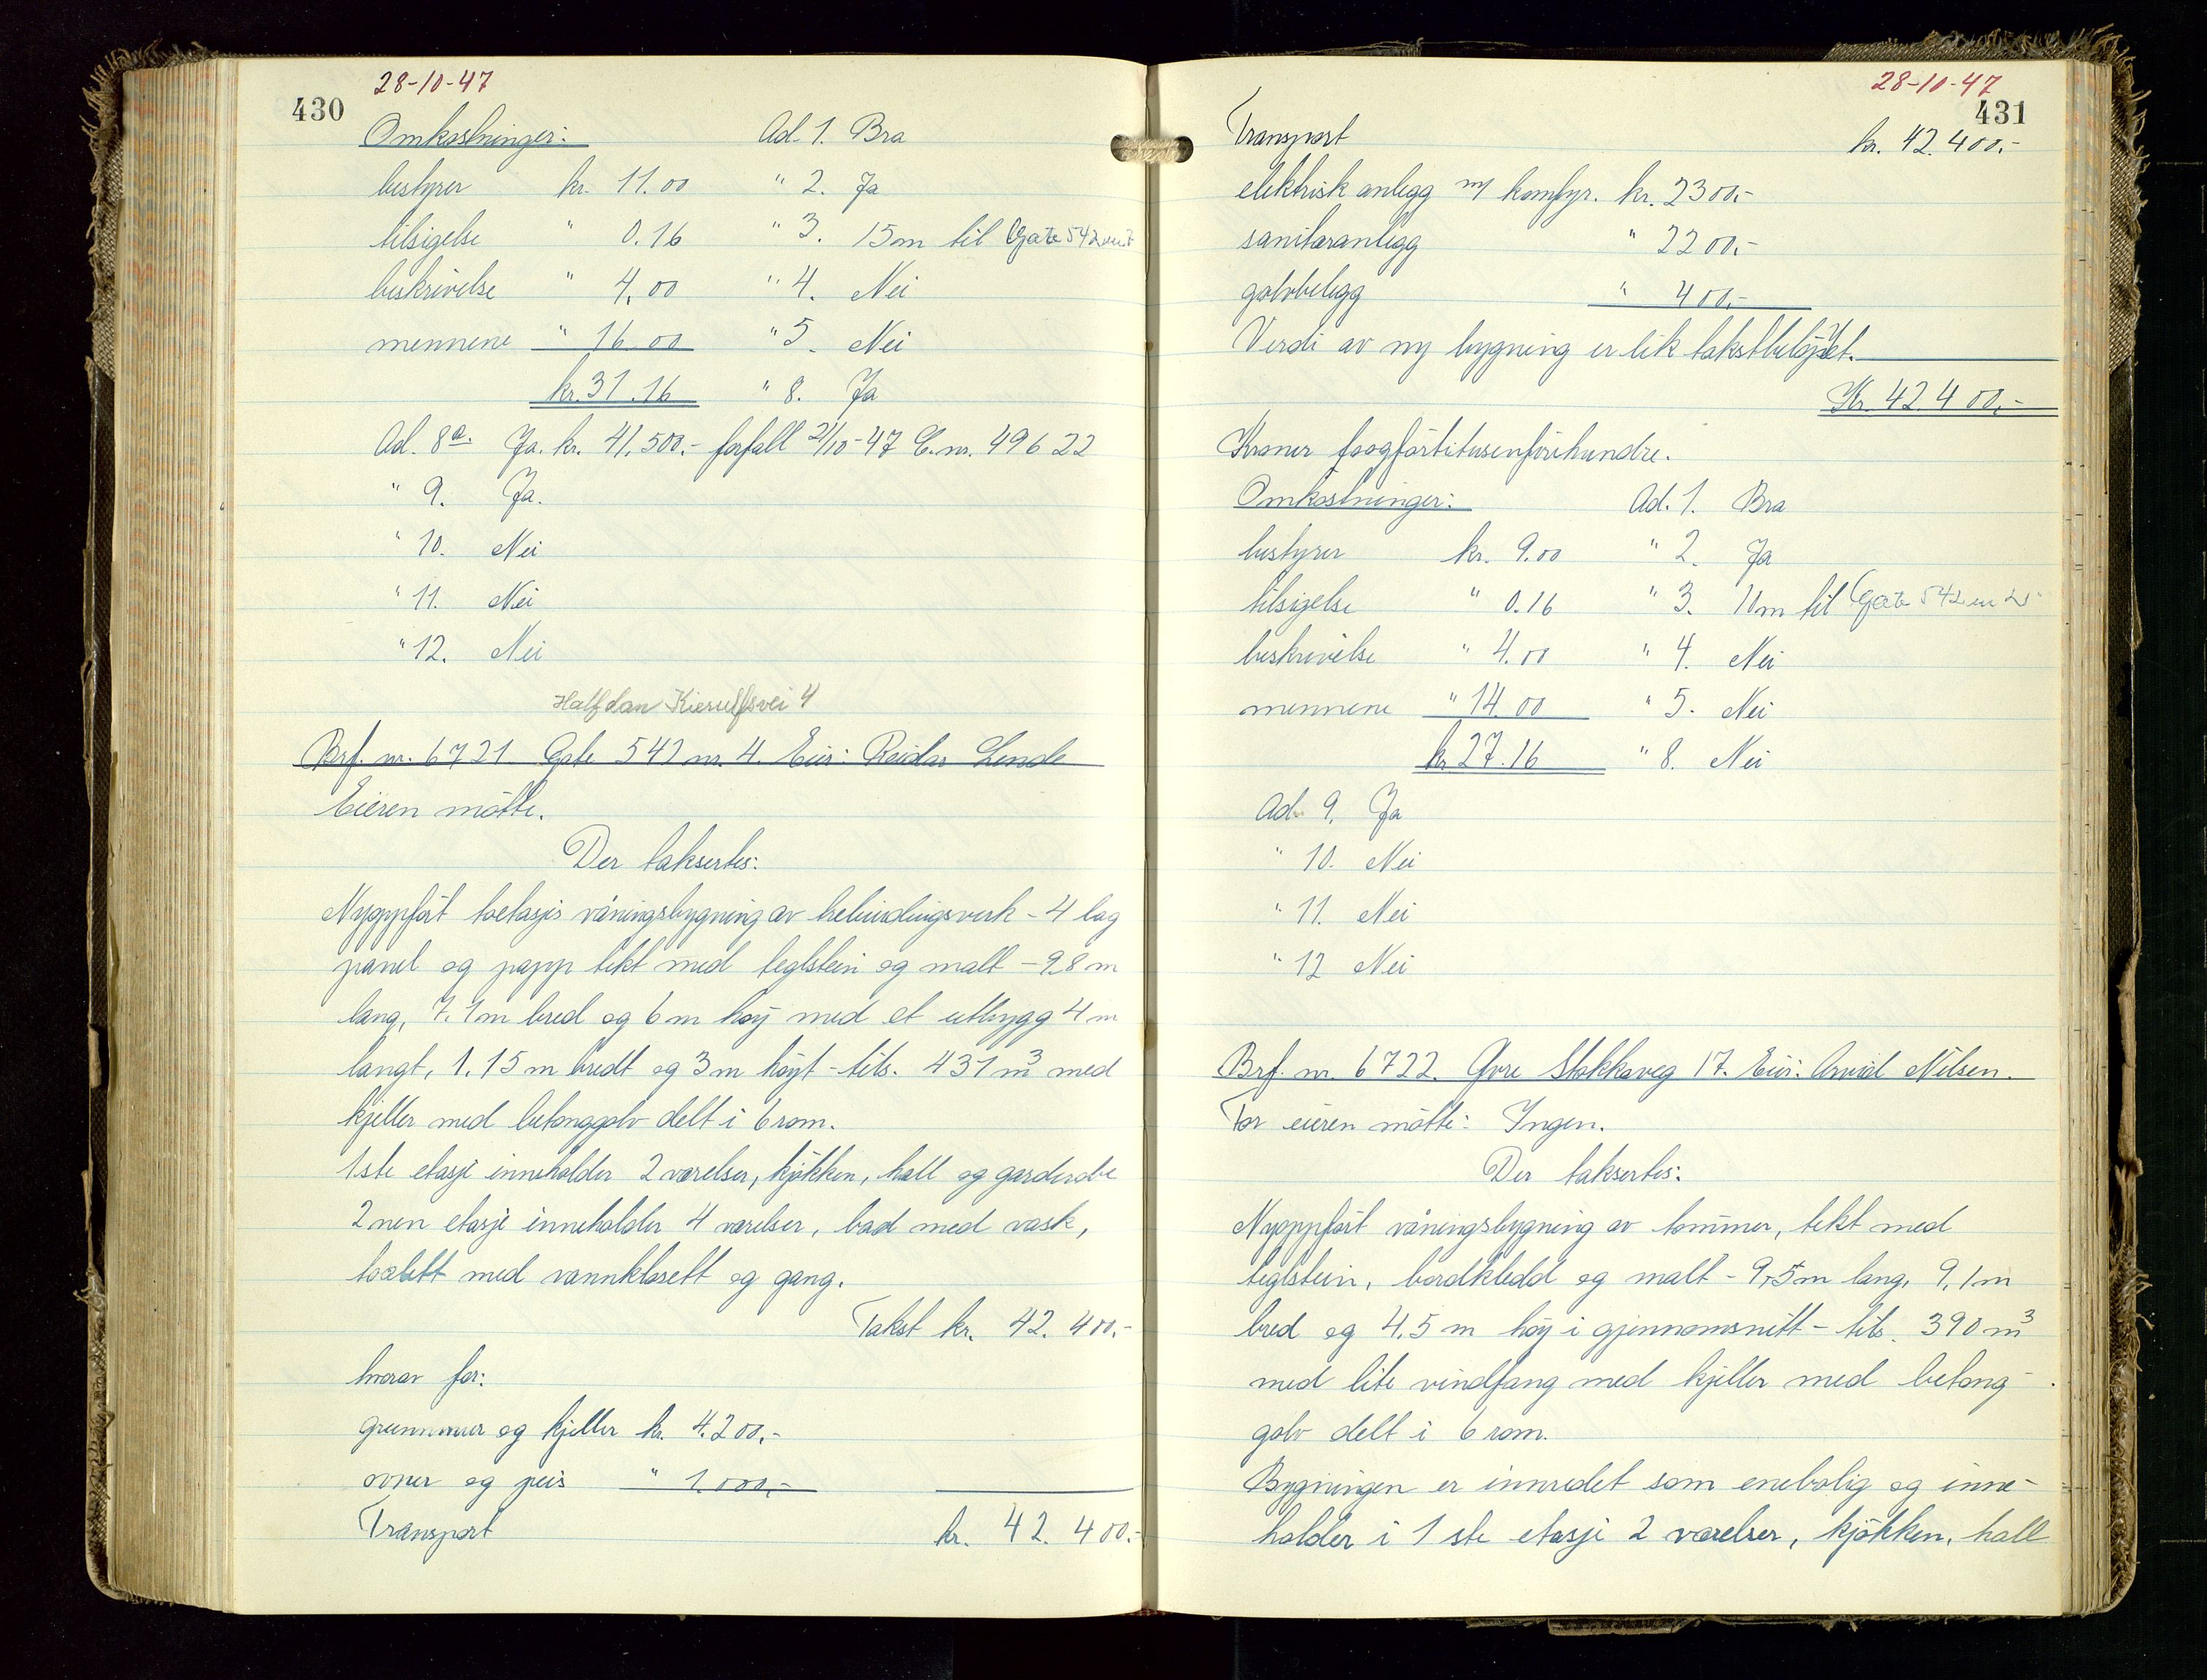 28-10-47
430
Omkostninger: Ad. 1. Bra
bestyrer kr. 11.00 " 2. Ja
tilsigelse " 0.16 " 3. 15m til Gate 542
beskrivelse " 4.00 " 4. Nei
mennene " 16.00 " 5. Nei
kr. 31.16 " 8. Ja
Ad. 8a. Ja. kr. 41,500.- forfall 21/10-47 49622
" 9. Ja.
" 10. Nei
" 11. Nei
" 12. Nei
Halfdan Kierulfsvei 4
Brf. nr. 6721 Gate 542 nr. 4. Eier: Reidar Lende
Eieren møtte.
Der taksertes:
Nyoppført toetasjes våningsbygning av bebindingsverk - 4 lag
panel og papp tekt med teglstein og malt - 9.8 m
lang, 7.1m bred og 6 m høy med et utbygg 4 m
langt, 1.15 m bredt og 3 m høyt - tils. 431 m3 med
kjeller med betonggolv delt i 6 rom.
1ste etasje inneholder 2 værelser, kjøkken, hall og garderobe
2nen etasje inneholder 4 værelser, bad med vask,
toalett med vannklosett og gang.
Takst kr. 42.400.-
hvorav for:
grunnmur og kjeller kr. 4.200.-
ovner og peis " 1.000.-
Transport kr. 42.400.-
28-10-47
431
Transport kr. 42.400.-
elektrisk anlegg m/ komfyr. kr. 2300.-
sanitæranlegg " 2200.-
golvbelegg " 400.-
Verdi av ny bygning er lik takstbeløpet.
Kr. 42.400.-
Kroner toogførtitusenfirehundre.
Omkostninger: Ad. 1. Bra
bestyrer kr. 9.00 " 2. Ja
tilsigelse " 0.16 " 3. 10m til Gate 542
beskrivelse " 4.00 " 4. Nei
mennene " 14.00 " 5. Nei
kr 27.16 " 8. Nei
Ad. 9. Ja
" 10. Nei
" 11. Nei
" 12 Nei
Brf. nr. 6722. Øvre Stokkaveg 17. Eier: Arvid Nilsen.
For eieren møtte: Ingen.
Der taksertes:
Nyoppført våningsbygning av tømmer, tekt med
teglstein, bordkledd og malt - 9,5m lang, 9,1m
bred og 4.5 m høy i gjennomsnitt - tils. 390 m3
med lite vindfang med kjeller med betong-
golv delt i 6 rom.
Bygningen er innredet som enebolig og inne-
holder i 1 ste etasje 2 værelser, kjøkken, hall